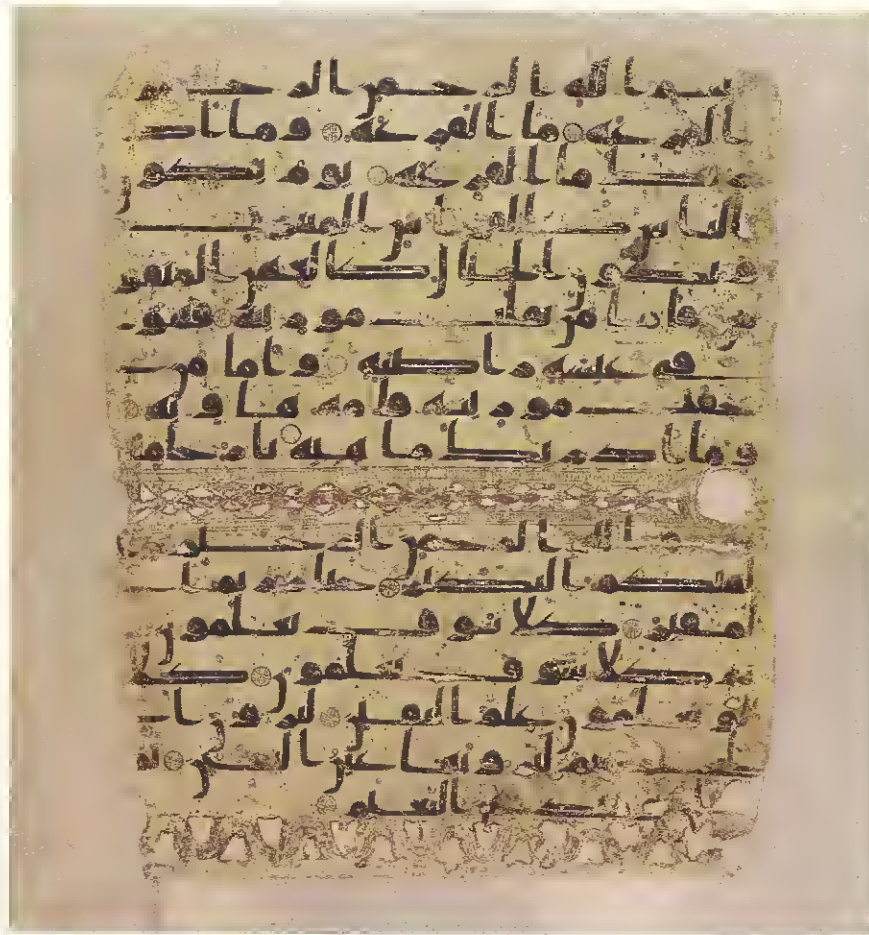 بسم الله الرحمن الرحيم
القرعة ما القرعة وما اد
ريك ما القرعة يوم يكون
الناس كالفراش المبثوث
وتكون الجبال كالعهن المنفو
ش فاما من ثقلت موزينه فهو
في عيشة راضية واما من
خفت موزينه فامه هاوية
وما ادريك ما هيه نار حامية
بسم الله الرحمن الرحيم
الهيكم التكثر حتى زرتم ا
لمقبر كلا سوف تعلمون
ثم كلا سوف تعلمون كلا
لو تعلمون علم اليقين لترون ا
لجحيم ثم لترونها عين اليقين ثم
لتسلن يومئذ عن النعيم